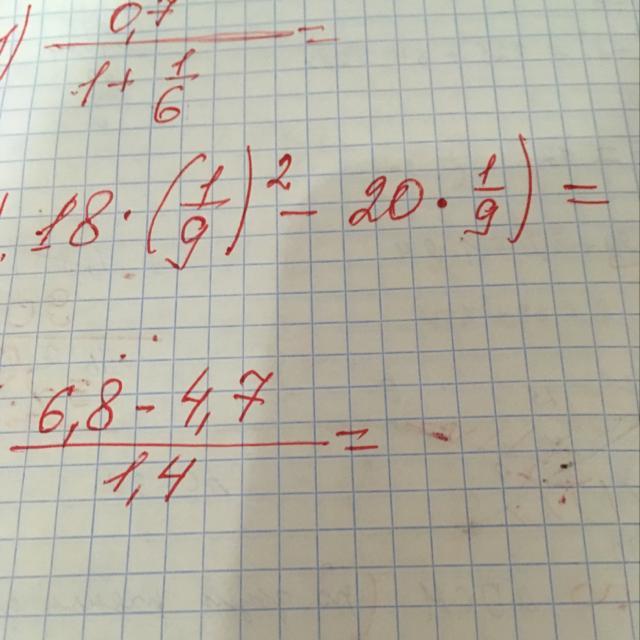 ) 0,7 / (1 + 1/6) =
18 · (1/9)² - 20 · 1/9) =
6,8 - 4,7 / 1,4 =